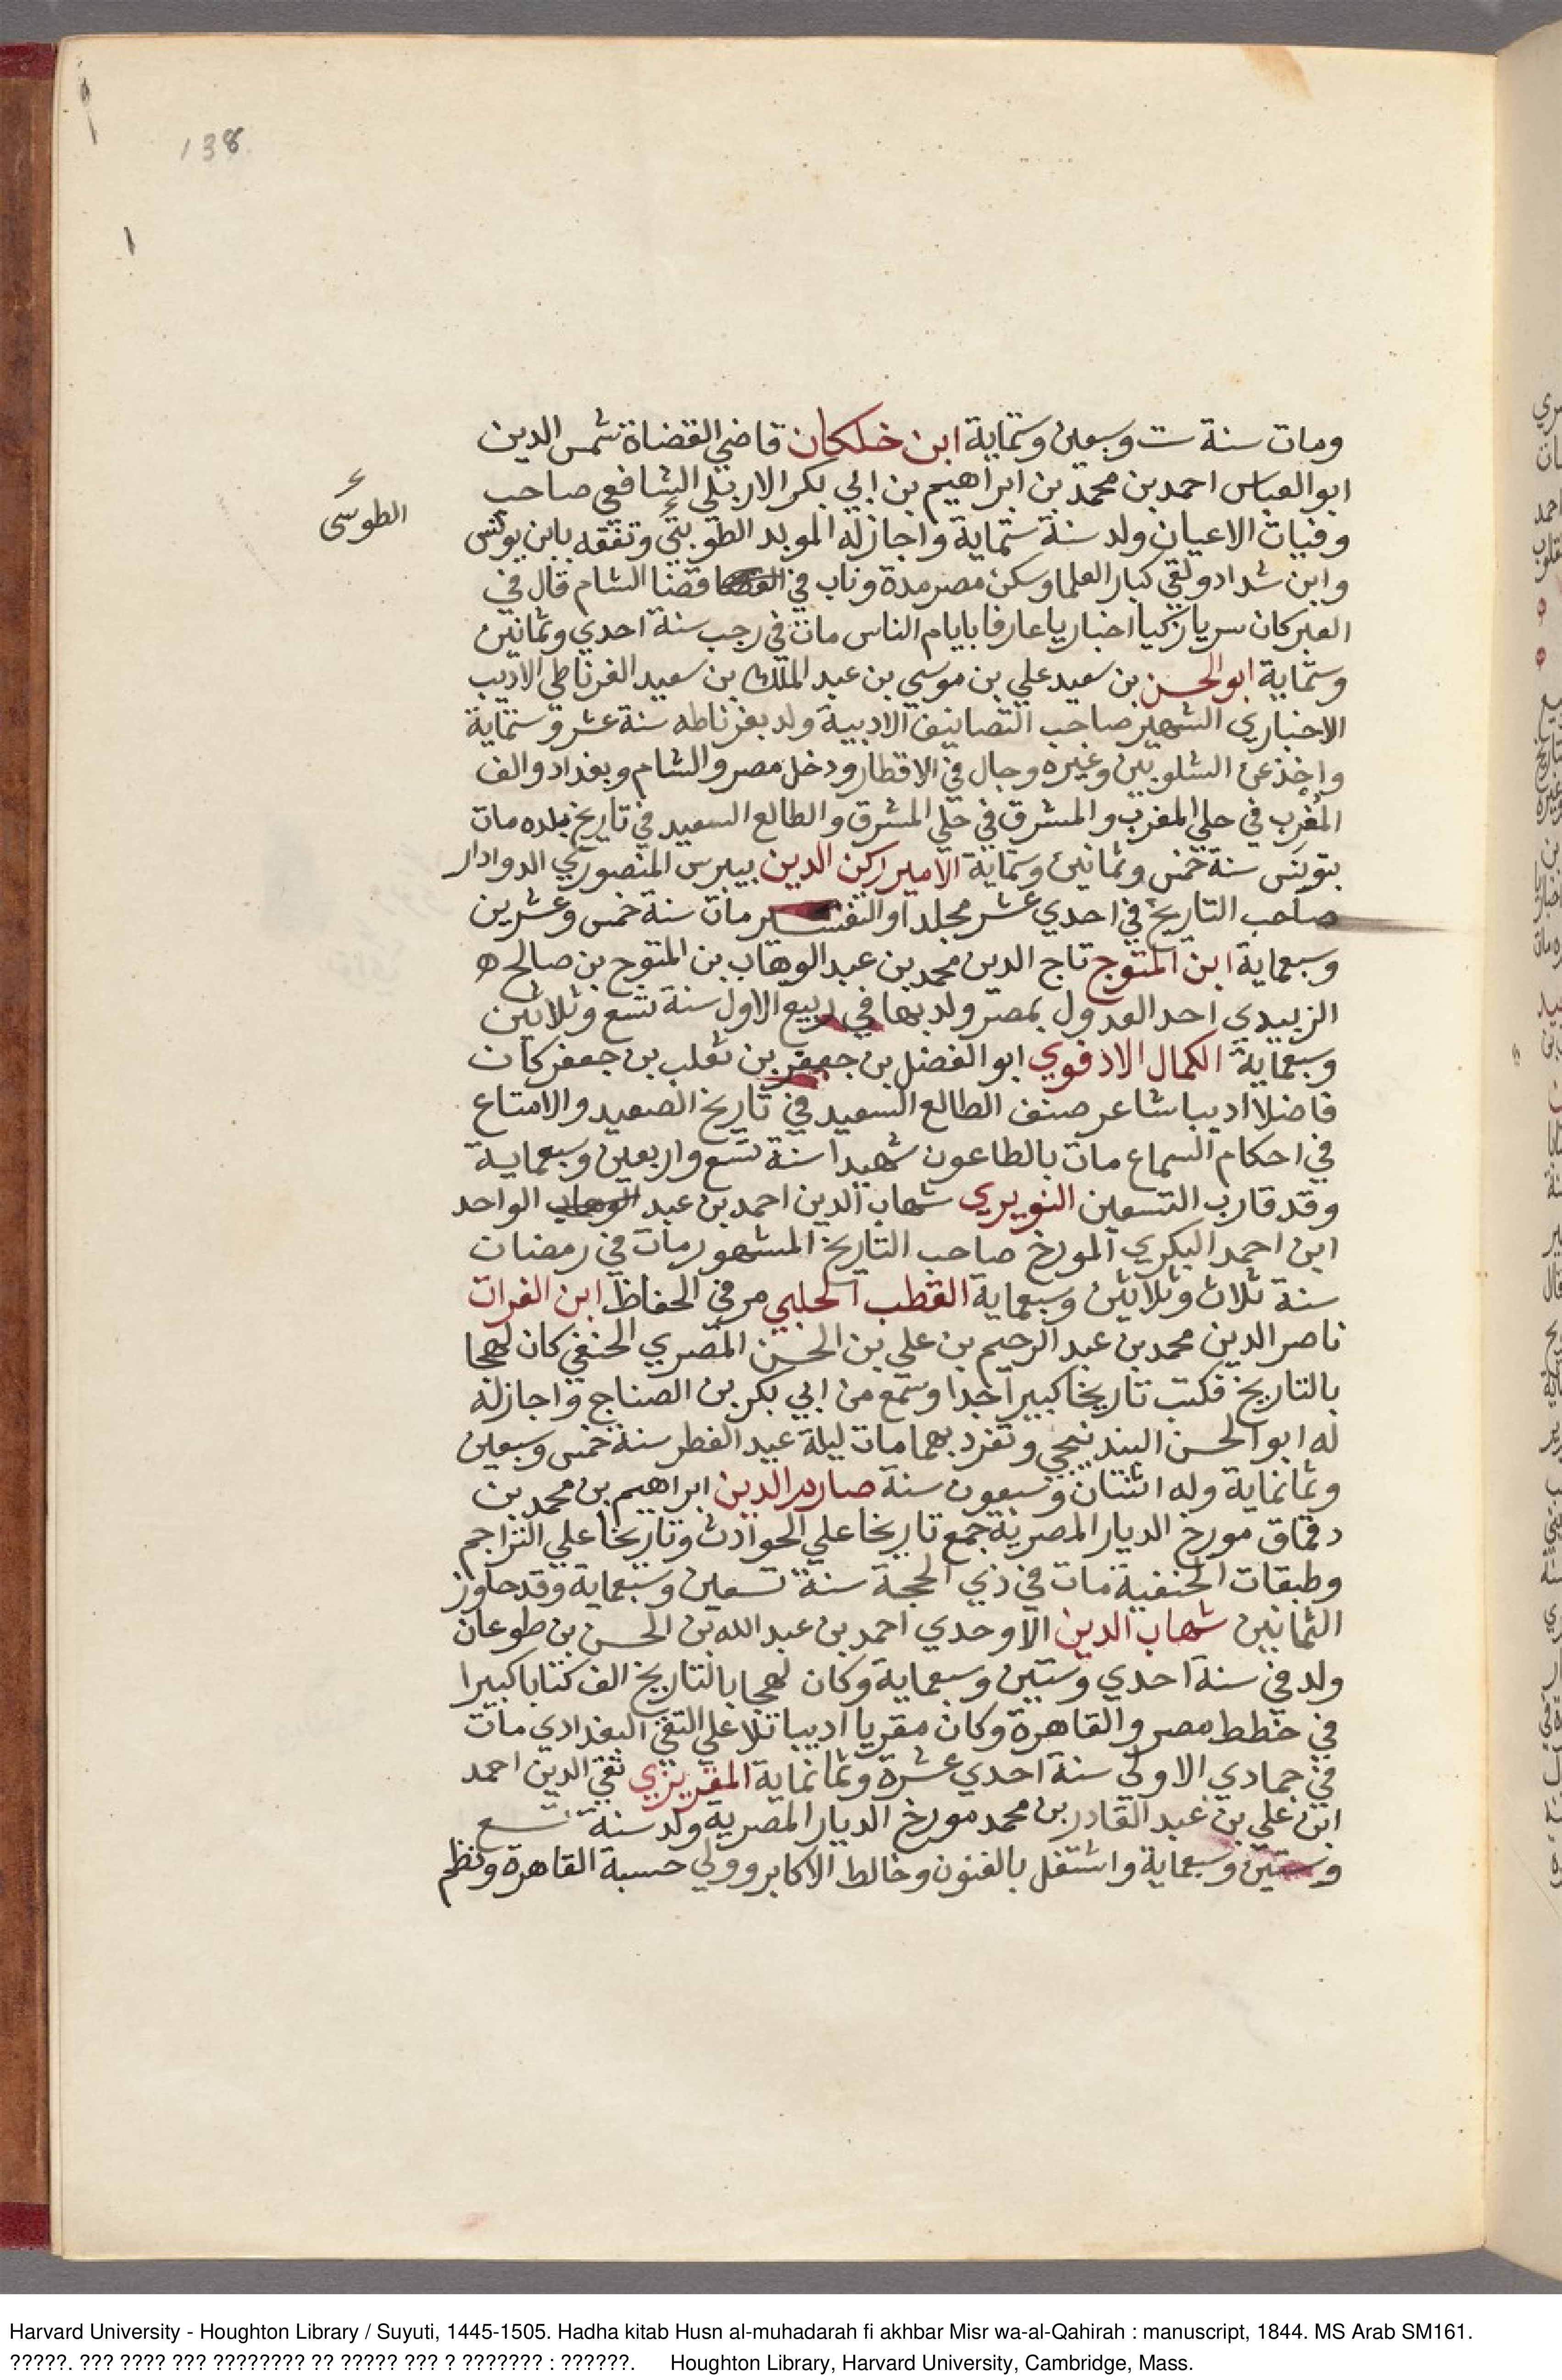 138
ومات سنة ست وسبعين وستماية ابن خلكان قاضي القضاة شمس الدين
ابو العباس احمد بن محمد بن ابراهيم بن ابي بكر الاربلي الشافعي صاحب
الطوسى
وفيات الاعيان ولد سنة ستماية واجاز له المويد الطو وتفقه بابن يونس
وابن شداد ولقي كبار العلما وسكن مصر مدة وناب في القضا قضا الشام قال في
العبر كان سريا زكيا اخباريا عارفا بايام الناس مات في رجب سنة احدي وثمانين
وستماية ابو الحسن بن سعيد علي بن موسي بن عبد الملك بن سعيد الغرناطي الاديب
الاخباري الشهير صاحب التصانيف الادبية ولد بغرناطه سنة عشر وستماية
واخذ عن الشلوبين وغيره وجال في الاقطار ودخل مصر والشام وبغداد والف
المغرب في حلي المغرب والمشرق في حلي المشرق والطالع السعيد في تاريخ بلده مات
بتونس سنة خمس وثمانين وستماية الامير ركن الدين بيبرس المنصوري الدوادار
صاحب التاريخ في احدي عشر مجلدا والتفسير مات سنة خمس وعشرين
وسبعماية ابن المتوج تاج الدين محمد بن عبد الوهاب بن المتوج بن صالح ه
الزبيدي احد العدول بمصر ولد بها في ربيع الاول سنة تسع وثلاثين
وسبعماية الكمال الادفوي ابو الفضل بن جعفر بن تغلب بن جعفر كان
فاضلا اديبا شاعر صنف الطالع السعيد في تاريخ الصعيد والامتاع
في احكام السماع مات بالطاعون شهيدا سنة تسع واربعين وسبعماية
وقد قارب التسعين النويري شهاب الدين احمد بن عبد الوهاب الواحد
ابن احمد البكري المورخ صاحب التاريخ المشهور مات في رمضان
سنة ثلاث وثلاثين وسبعماية القطب الحلبي مر في الحفاظ ابن الفرات
ناصر الدين محمد بن عبد الرحيم بن علي بن الحسن المصري الحنفي كان لهجا
بالتاريخ فكتب تاريخا كبيرا جدا وسمع من ابي بكر بن الصناج واجاز له
له ابو الحسن البندنيجي وتفرد بهما مات ليلة عيد الفطر سنة خمس وسبعين
وثمانماية وله اثنتان وسبعون سنة صارم الدين ابراهيم بن محمد بن
دقماق مورخ الديار المصرية جمع تاريخا علي الحوادث وتاريخا علي التراجم
وطبقات الحنفية مات في ذي الحجة سنة تسعين وسبعماية وقد جاوز
الثمانين شهاب الدين الاوحدي احمد بن عبد الله بن الحسن بن طوغان
ولد في سنة احدي وستين وسبعماية وكان لهجا بالتاريخ الف كتابا كبيرا
في خطط مصر والقاهرة وكان مقريا اديبا تلا علي التقي البغدادي مات
في جمادي الاولي سنة احدي عشرة وثمانماية المقريزي تقي الدين احمد
ابن علي بن عبد القادر بن محمد مورخ الديار المصرية ولد سنة تسع
وستين وسبعماية واشتغل بالفنون وخالط الاكابر وولي حسبة القاهرة ونظم
Harvard University - Houghton Library / Suyuti, 1445-1505. Hadha kitab Husn al-muhadarah fi akhbar Misr wa-al-Qahirah : manuscript, 1844. MS Arab SM161.
?????. ??? ???? ??? ???????? ?? ????? ??? ? ??????? : ??????. Houghton Library, Harvard University, Cambridge, Mass.